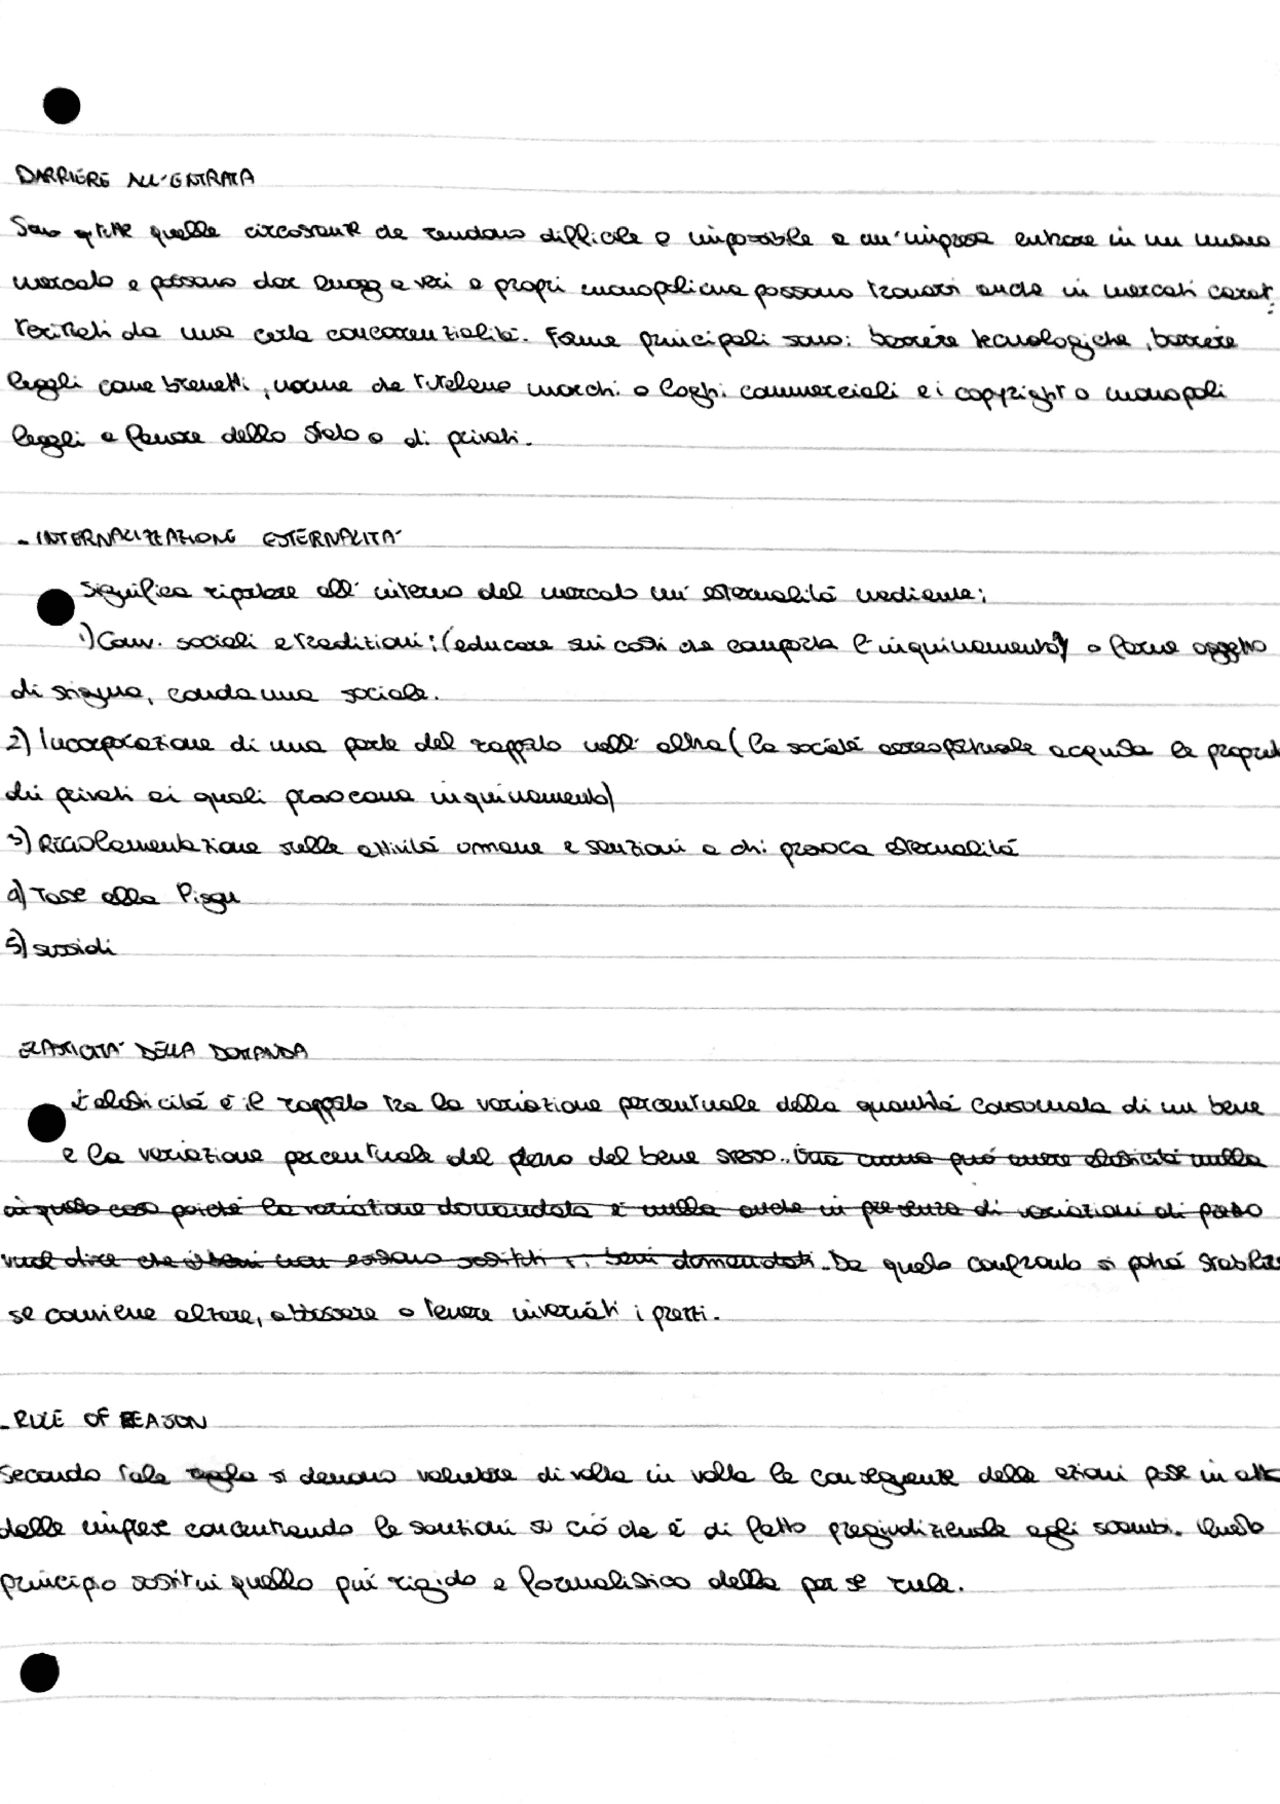 BARRIERE ALL'ENTRATA
Sono tutte quelle circostanze che rendono difficile o impossibile a un'impresa entrare in un nuovo
mercato e possono dar luogo a veri e propri monopoli ma possono trovarsi anche in mercati carat-
terizzati da una certa concorrenzialità. Forme principali sono: barriere tecnologiche, barriere
legali come brevetti, norme che tutelano marchi o loghi commerciali e i copyright o monopoli
legali a favore dello stato o di privati.
- INTERNALIZZAZIONE ESTERNALITA'
Significa riportare all'interno del mercato un'esternalità mediante:
1) Conv. sociali e tradizioni: (educare sui costi che comporta l'inquinamento) o farne oggetto
di stigma, condanna sociale.
2) Incorporazione di una parte del rapporto nell'altra (la società aeroportuale acquista le propriet
dei privati ai quali provocava inquinamento)
3) Regolamentazione sulle attività umane e sanzioni a chi provoca esternalità
4) Tasse alla Pigou
5) sussidi
ELASTICITA' DELLA DOMANDA
L'elasticità è il rapporto tra la variazione percentuale della quantità consumata di un bene
e la variazione percentuale del prezzo del bene stesso. può avere elasticità nulla
in questo caso poiché la variazione domandata è nulla anche in presenza di variazioni di prezzo
vuol dire che non esistono sostituti i beni domandati. Da questo confronto si potrà stabilire
se conviene alzare, abbassare o tenere invariati i prezzi.
- RULE OF REASON
Secondo tale regola si devono valutare di volta in volta le conseguenze delle azioni poste in atto
dalle imprese concentrando le sanzioni su ciò che è di fatto pregiudizievole agli scambi. Questo
principio sostituì quello più rigido e formalistico della per se rule.